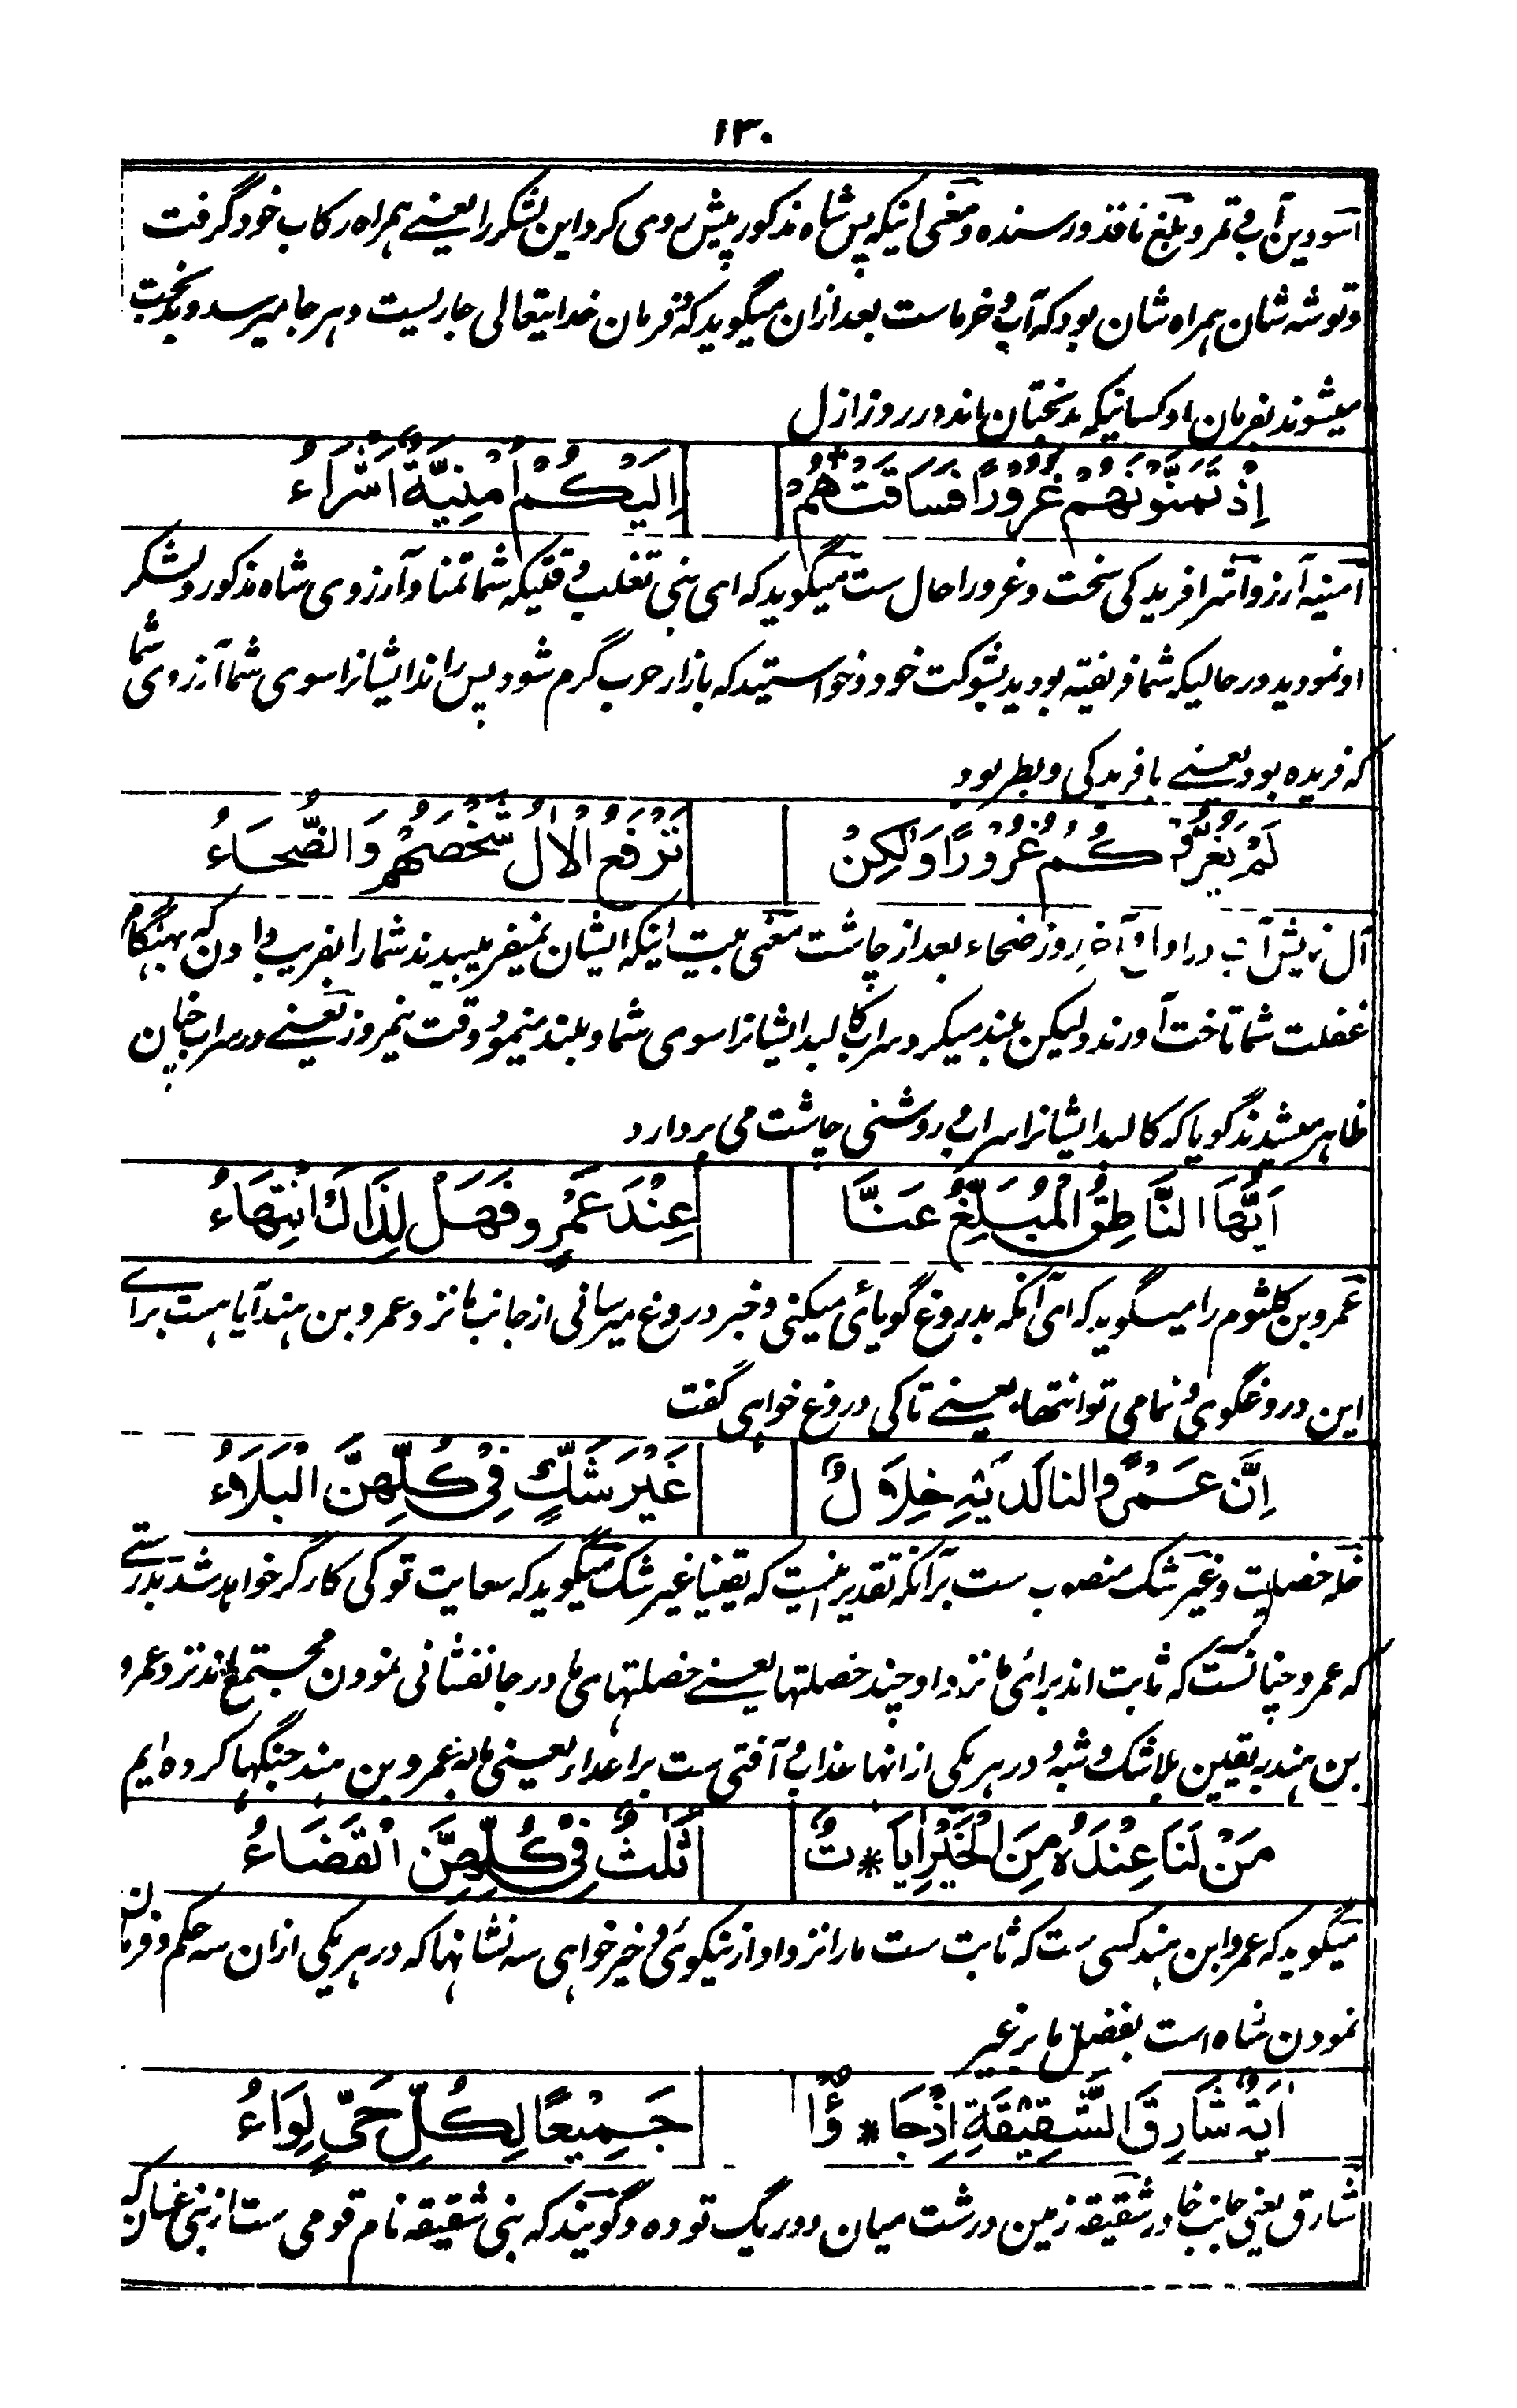 ۱۳۰
اسودین آب و تمر و بلغ نافذ و رسنده و معنی اینکه پس شاه مذکور پیش روی کرد این لشکر را یعنے همراه رکاب خود گرفت
و توشه شان همراه شان بود که آب و خرماست بعد ازان میگوید که فرمان خدایتعالی جاریست و هر جا میرسد و بدبخت
میشوند بفرمان او کسانیکه بدبختان اند در روز ازل
اِذْ تَمَنَّوْنَهُمْ غُرُوْرًا فَسَاقَتْهُمْ
اِلَيْكُمْ اُمْنِيَّةٌ اَشْرَاءُ
اُمنیه آرزو اشرا فریدکی سخت و غرورا حال ست میگوید که ای بنی تغلب وقتیکه شما تمنا و آرزوی شاه مذکور و لشکر
او نمودید در حالیکه شما فریفته بودید بشوکت خود و خواستید که بازار حرب گرم شود پس راند ایشانرا سوی شما آرزوی شما
که فریده بود یعنے بافریدکی و بطر بود
لَمْ يَغُرُّوْكُمْ غُرُوْرًا وَلٰكِنْ
تَرْفَعُ الْاٰلُ شَخْصَهُمْ وَالضَّحَاءُ
آل در اول و آخر روز ضحاء بعد از چاشت معنی بیت اینکه ایشان نمیفریبیدند شما را بفریب دادن که بهنگام
غفلت شما تاخت آورند ولیکن بلند میکرد سراب کالبد ایشانرا سوی شما و بلند مینمود وقت نیمروز یعنے در سراب چنان
ظاهر میشدند گویا که کالبد ایشانرا سراب و روشنی چاشت می بردارد
اَيُّهَا النَّاطِقُ الْمُبَلِّغُ عَنَّا
عِنْدَ عَمْرٍو فَهَلْ لِذَاكَ انْتِهَاءُ
عمرو بن کلثوم را میگوید که ای آنکه بدروغ گویائی میکنی و خبر دروغ میرسانی از جانب ما نزد عمرو بن هند آیا هست برای
این دروغگوی و نمامی تو انتها یعنے تا کی دروغ خواهی گفت
اِنَّ عَمْرًوا لنا لَدَيْهِ خِلَالٌ
غَيْرَ شَكٍّ فِيْ كُلِّهِنَّ الْبَلَاءُ
خله خصلت و غیر شک منصوب ست برآنکه تقدیر نیست که یقینا غیر شک میگوید که سعایت تو کی کارگر خواهد شد بدرستے
که عمرو چنانست که ثابت اند برائ ما نزد او چند خصلتها یعنے خصلتهای ما در جانفشانی نمودن مجتمع اند نزد عمرو
بن هند به یقین بلا شک و شبه و در هر یکی از انها عذاب و آفتی ست بر اعدا یعنی ما به عمرو بن هند جنگها کرده ایم
مَنْ لَنَا عِنْدَهُ مِنَ الْخَيْرِ اٰيَا * تٌ
ثَلٰثٌ فِيْ كُلِّهِنَّ الْقَضَاءُ
میگوید که عمرو ابن هند کسی ست که ثابت ست ما را نزد او از نیکوئی و خیر خواهی سه نشانها که در هر یکی ازان سه حکم و فرمان
نمودن شاه است بفضل ما بر غیر
اٰيَةٌ شَارِقُ الشَّقِيْقَةِ اِذْ جَا * ؤُا
جَمِيْعًا لِكُلِّ حَيٍّ لِوَاءُ
شارق یعنی جانب خاور شقیقه زمین درشت میان دو ریگ توده و گویند که بنی شقیقه نام قومی ست از بنی غسان که